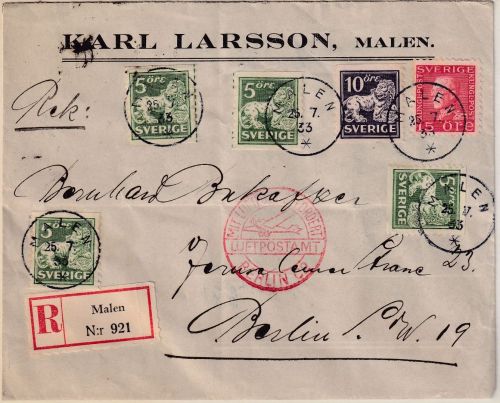 KARL LARSSON, MALEN.
Rek:
5 ÖRE SVERIGE
MALEN 25.7.33
5 ÖRE SVERIGE
MALEN 25.7.33
10 ÖRE SVERIGE
MALEN 25.7.33
SVERIGE 15 ÖRE
5 SVERIGE
MALEN 25.7.33
5 SVERIGE
MALEN 25.7.33
Bernhard
MIT LUFTPOST BEFÖRDERT
LUFTPOSTAMT
BERLIN C2
23.
Berlin S.W. 19
R
Malen
N:r 921